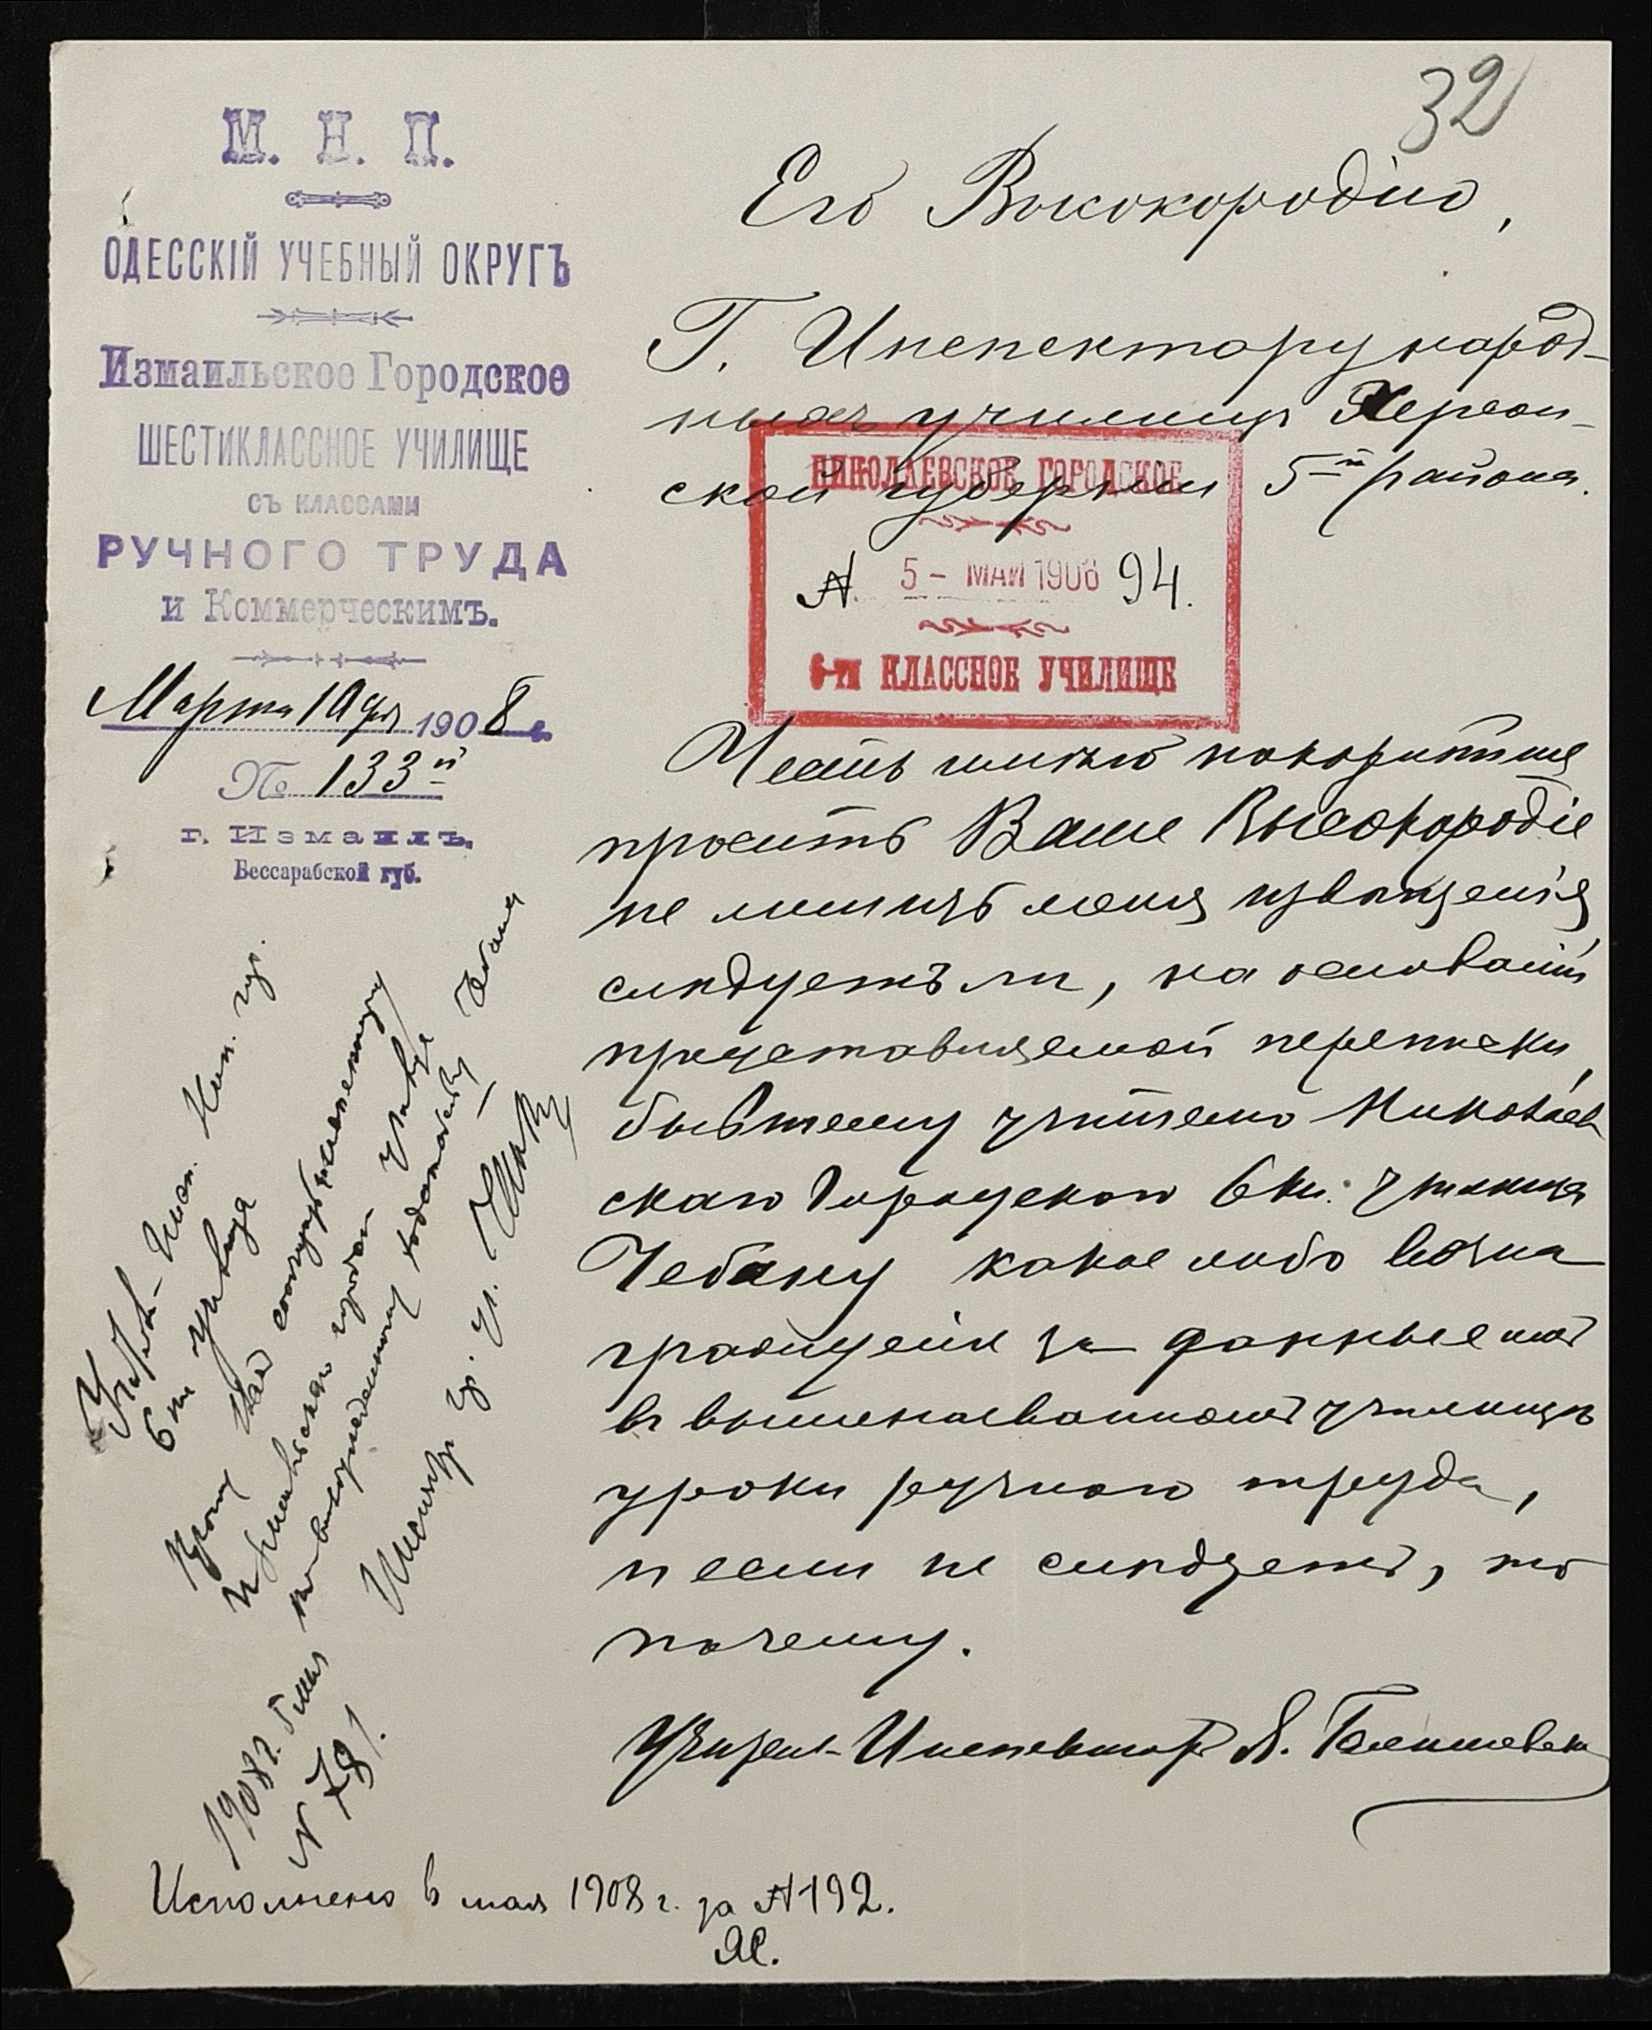 32
М. Н. П.
ОДЕССКІЙ УЧЕБНЫЙ ОКРУГЪ
Измаильское Городское
ШЕСТИКЛАССНОЕ УЧИЛИЩЕ
СЪ КЛАССАМИ
РУЧНОГО ТРУДА
и Коммерческимъ.
Марта 19 дня 1908 г.
№ 133й
г. Измаилъ,
Бессарабской губ.
Его Высокородію,
Г. Инспектору народ-
ныхъ училищъ Херсон-
ской губерніи 5-го района.
НИКОЛАЕВСКОЕ ГОРОДСКОЕ
№ 5 - МАЙ 1908 94.
6-ти КЛАССНОЕ УЧИЛИЩЕ
Честь имѣю покорнѣйше
просить Ваше Высокородіе
не лишить меня извѣщенія
слѣдуетъ ли, на основаніи
представляемой переписки,
бывшему учителю Николаев
скаго Городского 6 кл. училища
Чебану какое либо возна
гражденіе за данные имъ
въ вышеназванномъ училищѣ
уроки ручного труда,
и если не слѣдуетъ, то
почему.
Учитель-Инспекторъ А.
Учителю-Инсп. Ник. гор.
6 кл. училища
Прошу
Измаильскаго город. училища
Чебана
1908 г. 5 мая
№ 781.
Исполнено 6 мая 1908 г. за №192.